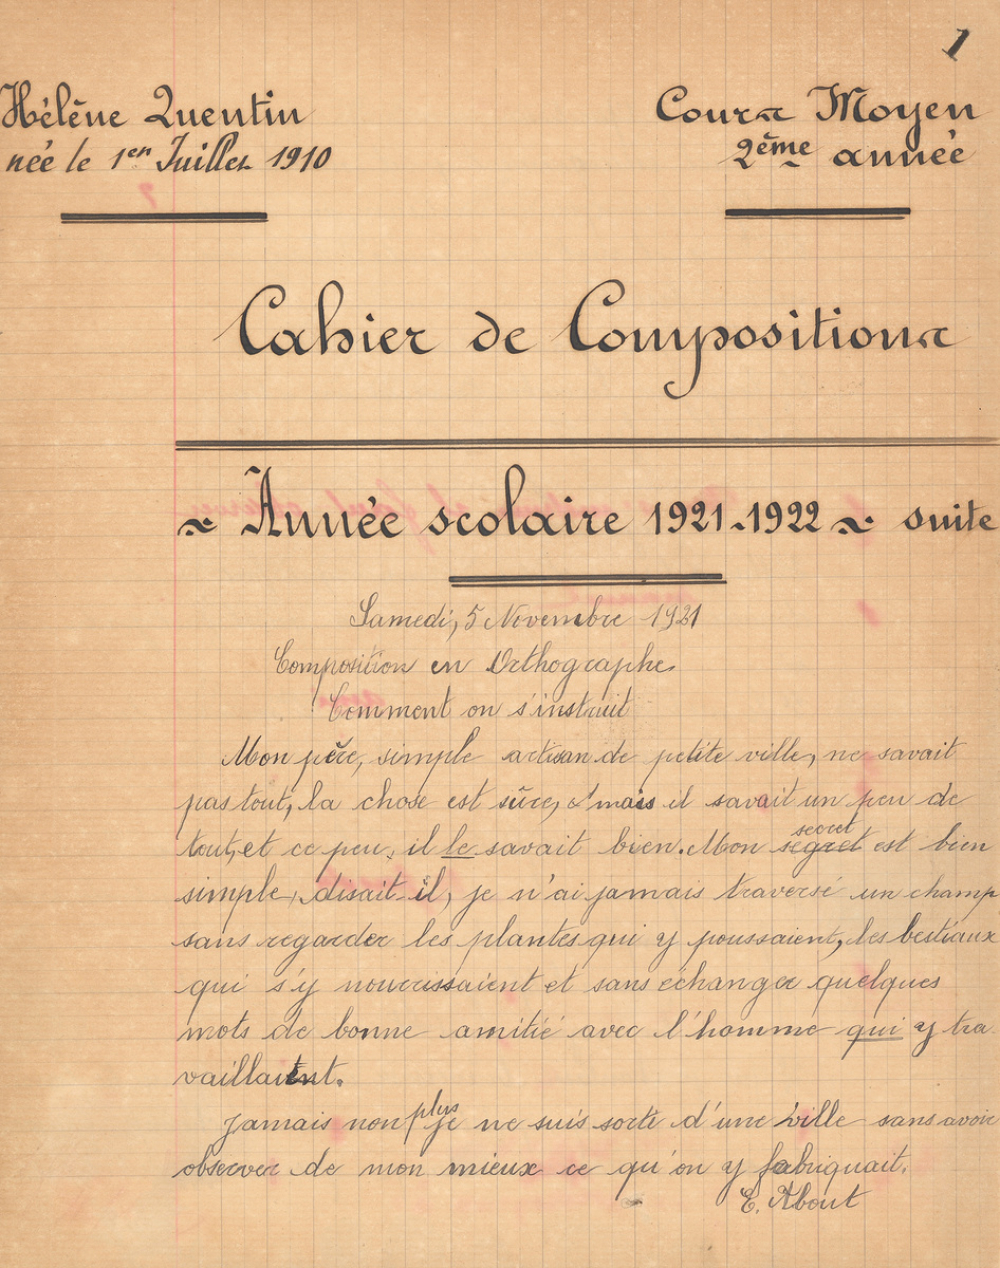 1
Hélène Quentin
née le 1er Juillet 1910
Cours Moyen
2ème année
Cahier de Compositions
~ Année scolaire 1921-1922 ~ suite
Samedi, 5 Novembre 1921
Composition en Orthographe.
Comment on s'instruit
Mon père, simple artisan de petite ville, ne savait
pas tout, la chose est sûre, mais il savait un peu de
tout, et ce peu, il le savait bien. Mon segret secret est bien
simple, disait-il, je n'ai jamais traversé un champ
sans regarder les plantes qui y poussaient, les bestiaux
qui s'y nourrissaient et sans échanger quelques
mots de bonne amitié avec l'homme qui y tra
vaillait.
Jamais non plus je ne suis sorti d'une ville sans avoir
observer de mon mieux ce qu'on y fabriquait.
E. About